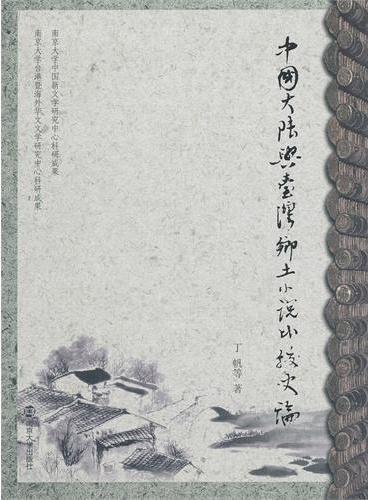 中國大陸與臺灣鄉土小說比較史論
南京大学中国新文学研究中心科研成果
南京大学台港暨海外华文文学研究中心科研成果
丁帆等 著
南京大学出版社